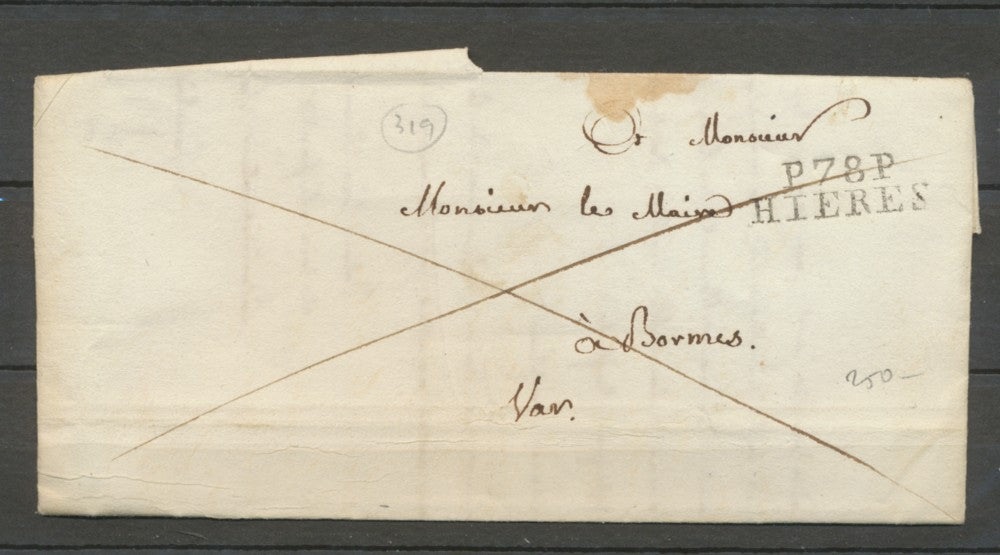 319
A Monsieur
P78P
HIERES
Monsieur le Maire
à Bormes.
250 -
Var.